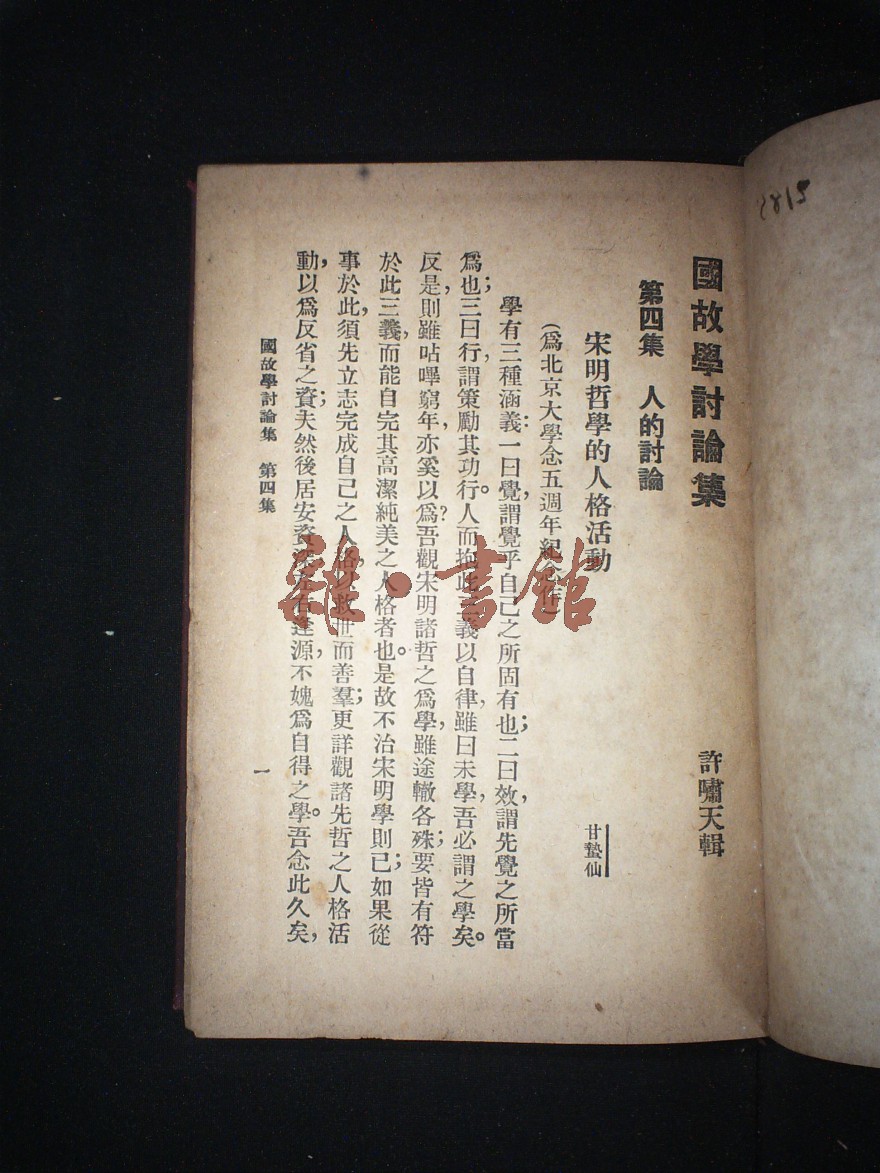 國故學討論集
許嘯天輯
第四集 人的討論
宋明哲學的人格活動
甘蟄仙
(為北京大學念五週年紀念作)
學有三種涵義:一曰覺,謂覺乎自己之所固有也;二曰效,謂先覺之所當
爲也;三曰行,謂策勵其功行。人而抱此三義以自律,雖曰未學,吾必謂之學矣。
反是,則雖呫嗶窮年,亦奚以爲?吾觀宋明諸哲之爲學,雖途轍各殊;要皆有符
於此三義,而能自完其高潔純美之人格者也。是故不治宋明學則已;如果從
事於此,須先立志完成自己之人格,以救世而善羣;更詳觀諸先哲之人格活
動,以爲反省之資;夫然後居安資深,左右逢源,不媿爲自得之學。吾念此久矣,
國故學討論集 第四集
一
2185
雜·書館